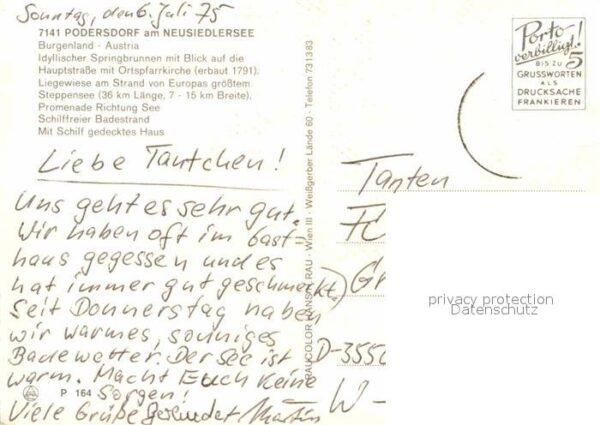 Sonntag, den 6. Juli 75
7141 PODERSDORF am NEUSIEDLERSEE
Burgenland - Austria
Idyllischer Springbrunnen mit Blick auf die
Hauptstraße mit Ortspfarrkirche (erbaut 1791).
Liegewiese am Strand von Europas größtem
Steppensee (36 km Länge, 7 - 15 km Breite).
Promenade Richtung See
Schilffreier Badestrand
Mit Schilf gedecktes Haus
Liebe Tantchen!
Uns geht es sehr gut.
Wir haben oft im Gast-
haus gegessen und es
hat immer gut geschmeckt.
Seit Donnerstag haben
wir warmes, sonniges
Badewetter. Der See ist
warm. Macht Euch keine
Sorgen!
P 164
Viele Grüße
Martin
RAUCOLOR HANS K. RAU · Wien III · Weißgerber Lände 60 · Telefon 731383
Porto-
verbilligt!
BIS ZU 5
GRUSSWORTEN
ALS
DRUCKSACHE
FRANKIEREN
Tanten
D-3550
W-
privacy protection
Datenschutz